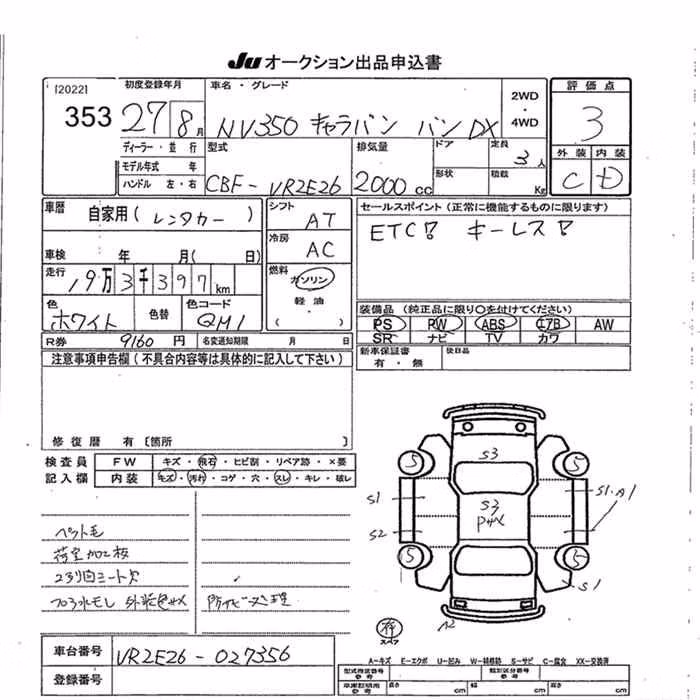 Ju オークション出品申込書
[2022]
353
初度登録年月
27 8月
車名・グレード
NV350 キャラバン バン DX
2WD
・
4WD
評価点
3
外装 内装
C D
ディーラー・並行
モデル年式 年
ハンドル 左・右
型式
CBF-VR2E26
排気量
2000 cc
ドア
形状
定員
3人
積載
Kg
車歴
自家用(レンタカー)
車検 年 月( 日)
走行
19万3千397km
色
ホワイト
色替
色コード
QM1
シフト
AT
冷房
AC
燃料
ガソリン
・
軽油
・
( )
セールスポイント(正常に機能するものに限ります)
ETC! キーレス!
装備品(純正品に限り○を付けてください)
PS PW ABS エアB AW
SR ナビ TV カワ
新車保証書
有・無
後日品
R券 9160 円 名変通知期限 月 日
注意事項申告欄(不具合内容等は具体的に記入して下さい)
修復歴 有〔箇所 〕
検査員
記入欄
FW キズ・飛石・ヒビ割・リペア跡・×要
内装 キズ・汚れ・コゲ・穴・スレ・キレ・破レ
ペット毛
荷室加工板
2列目シート欠
フロア水モレ 外装色サメ
防サビ処理
S3
S3
Pサメ
S1
S2
S1・A1
S1
A2
5
5
5
5
有
スペア
車台番号 VR2E26-027356
登録番号
A-キズ E-エクボ U-凹み W-補修跡 S-サビ C-腐食 XX-交換済
型式指定番号
参考
類別区分番号
参考
車庫証明用
参考
長さ cm 幅 cm 高さ cm